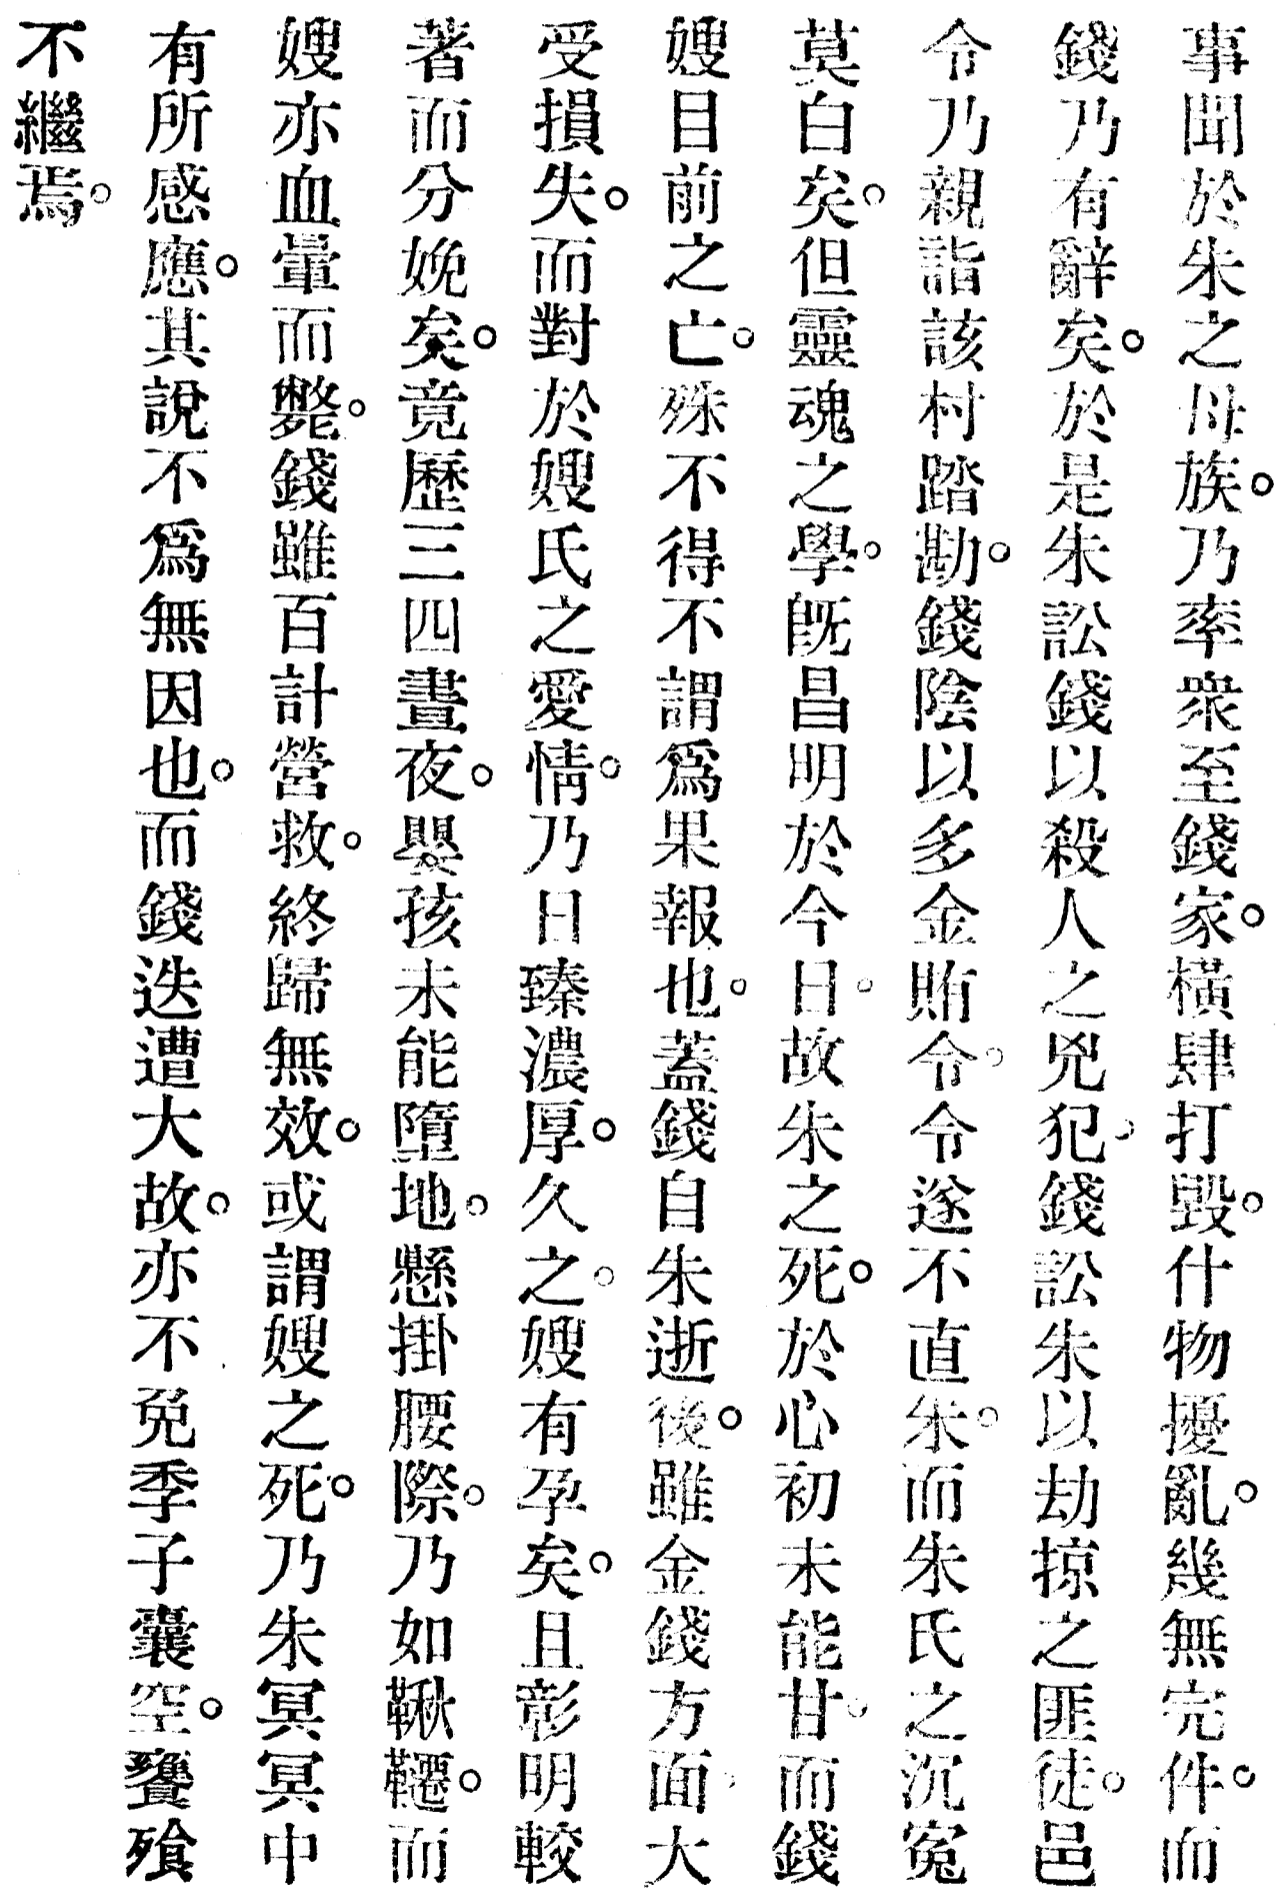 事聞於朱之母族。乃率衆至錢家。橫肆打毀。什物擾亂。幾無完件。而
錢乃有辭矣。於是朱訟錢以殺人之兇犯。錢訟朱以劫掠之匪徒。邑
令乃親詣該村踏勘。錢陰以多金賄令。令遂不直朱。而朱氏之沉寃
莫白矣。但靈魂之學。旣昌明於今日。故朱之死。於心初未能甘。而錢
嫂目前之亡。殊不得不謂爲果報也。蓋錢自朱逝後。雖金錢方面。大
受損失。而對於嫂氏之愛情。乃日臻濃厚。久之。嫂有孕矣。且彰明較
著而分娩矣。竟歷三四晝夜。嬰孩未能墮地。懸掛腰際。乃如鞦韆。而
嫂亦血暈而斃。錢雖百計營救。終歸無效。或謂嫂之死。乃朱冥冥中
有所感應。其說不爲無因也。而錢迭遭大故。亦不免季子囊空。饔飱
不繼焉。